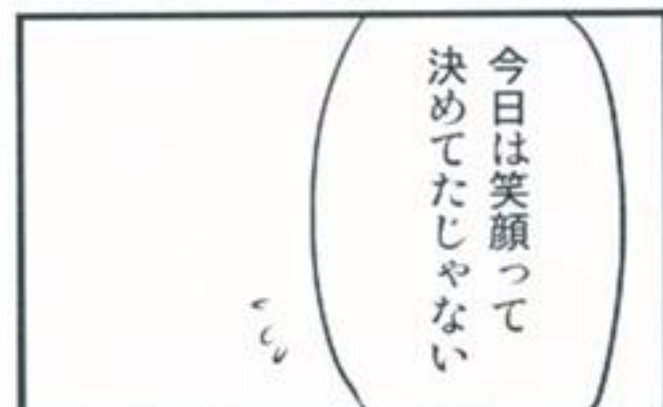 今日は笑顔って
決めてたじゃない